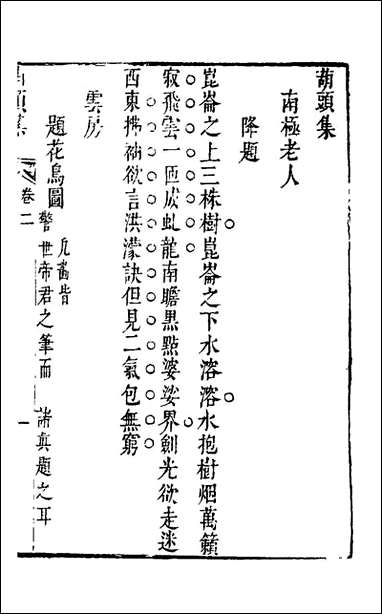 葫頭集
南極老人
降題
崑崙之上三株樹崑崙之下水溶溶水抱樹烟萬籟
寂飛雲一匝成虬龍南瞻黑點婆娑界劍光欲走迷
西東拂袖欲言洪濛訣但見二氣包無窮
雲房
題花鳥圖 凢畵皆警世帝君之筆而諸真題之耳
卷二
一